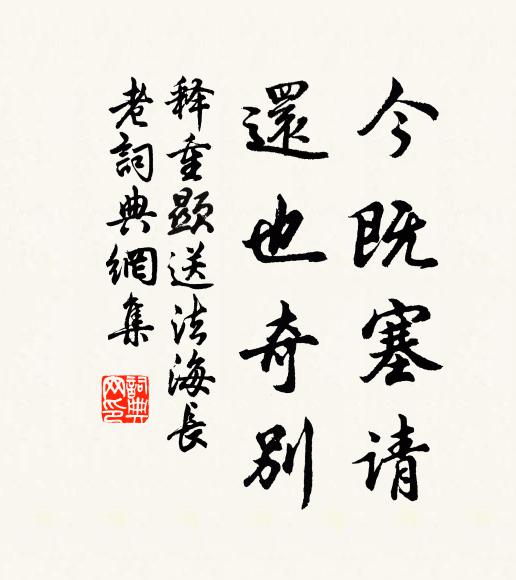 今既塞请
還也奇别
释重顯送法海長
老詞典網集
詞典网印